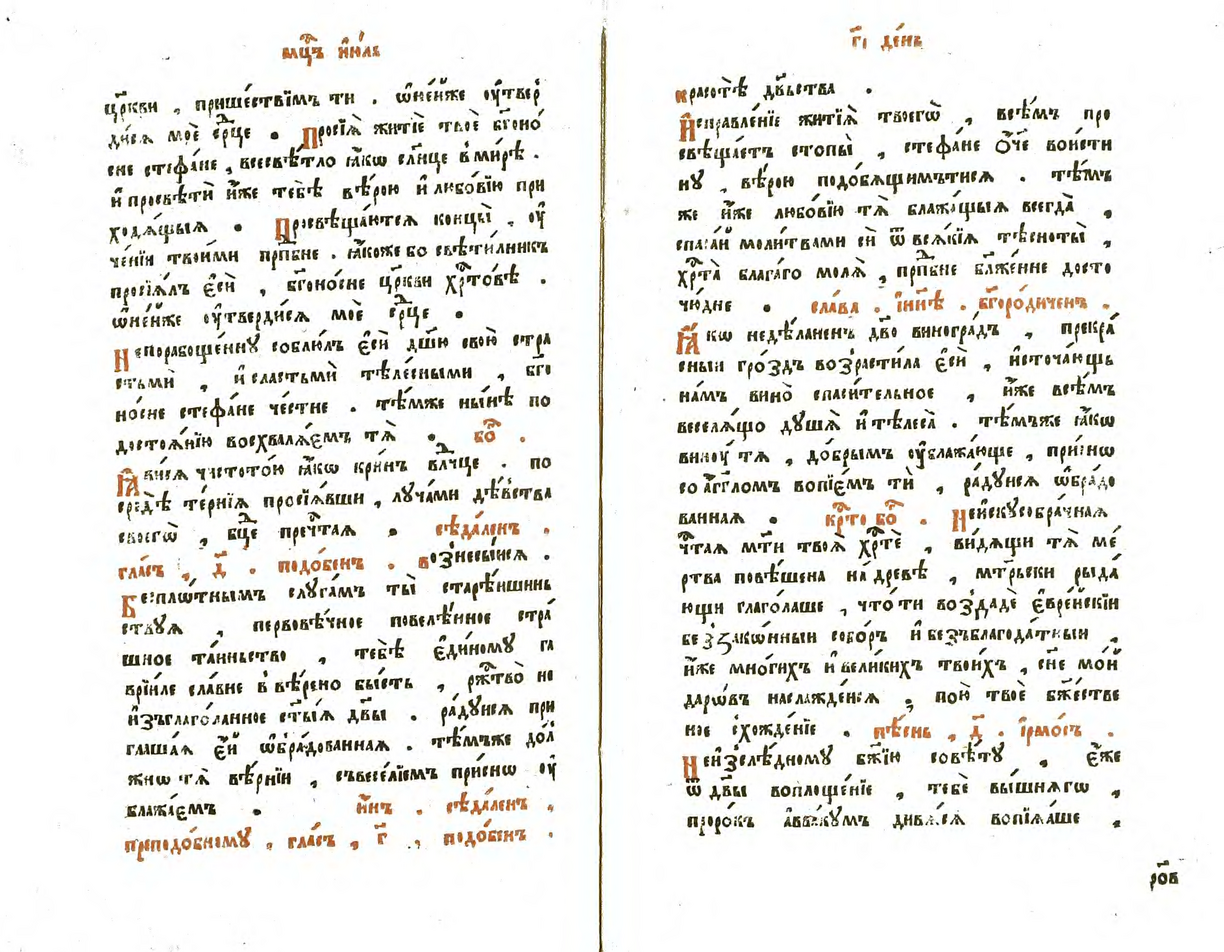 мцⷭ҇ъ і҆ю́ль
цр҃кви , прише́ствїимъ ти . ѡ҆не́йже ᲂу҆твер
ди́сѧ моѐ срⷣце . Просїѧ̀ житїѐ твоѐ бг҃оно́
сне стефа́не , всесвѣ́тло ꙗ҆́кѡ сл҃нце в ми́рѣ .
и҆ просвѣтѝ и҆̀же тебѣ̀ вѣ́рою и҆ любо́вїю при
ходѧ́щыѧ . Просвѣща́ютсѧ концы̀ , ᲂу҆
че́нїи твои́ми прпⷣбне . ꙗ҆́коже бо свѣти́лникъ
просїѧ́лъ є҆сѝ , бг҃оно́сне цр҃кви хрⷭ҇то́вѣ .
ѡ҆не́йже ᲂу҆тверди́сѧ моѐ срⷣце .
Непорабоще́нну соблю́лъ є҆сѝ дш҃ю свою̀ стра
стьмѝ , и҆ сластьмѝ тѣле́сными , бг҃о
но́сне стефа́не че́стне . тѣ́мже ны́нѣ по
достоѧ́нїю восхвалѧ́емъ тѧ̀ . бо҇ .
Ꙗ҆ви́сѧ чистото́ю ꙗ҆́кѡ кри́нъ влⷣчце . по
средѣ̀ те́рнїѧ просїѧ́вши , луча́ми дѣ́вства
своегѡ̀ , бцⷣе пречⷭ҇таѧ . сѣда́ленъ .
гла́съ , д҃ . подо́бенъ . вознесы́исѧ .
Бесплѡ́тнымъ слуга́мъ ты̀ старѣ́ишинь
ствуѧ , первовѣ́чное повелѣ́нное стра́
шное та́иньство , тебѣ̀ є҆ди́ному га
врїи́ле сла́вне в вѣ́рено бы́сть , ржⷭ҇тво̀ не
и҆зъглаго́ланное ст҃ы́ѧ дв҃ы . ра́дуисѧ при
глаша́ѧ є҆́и ѡ҆бра́дованнаѧ . тѣ́мъже дол
жнѡ тѧ̀ вѣ́рнїи , съвесе́лїемъ при́снѡ ᲂу҆
блажа́емъ . и҆́нъ . сѣда́ленъ ,
преподо́бному , гла́съ , г҃ . , подо́бенъ .
г҃і де́нь
красотѣ̀ дв҃ьства .
И҆справле́нїе житїѧ̀ твоегѡ̀ , всѣ́мъ про
свѣща́етъ стопы̀ , стефа́не ѻ҆́ч҃е воисти
ну , вѣ́рою подобѧ́щимътисѧ . тѣ́мъ
же и҆̀же любо́вїю тѧ̀ блажа́щыѧ всегда̀ ,
спаса́й моли́твами сѝ ѿ всѧ́кїѧ тѣсноты̀ ,
хрⷭ҇та̀ блага́го молѧ̀ , прпⷣбне бл҃же́нне досто
чю́дне . сла́ва . и҆ нн҃ѣ . бг҃оро́диченъ .
Ꙗ҆́кѡ недѣ́ланенъ дв҃о виногра́дъ , прекра́
сныи гро́здъ возрасти́ла є҆сѝ , и҆сточа́ющь
на́мъ вино̀ спаси́тельное , и҆́же всѣ́мъ
веселѧ́що ду́шѧ и҆ тѣлеса̀ . тѣ́мъже ꙗ҆́кѡ
вину́ тѧ , до́брымъ ᲂу҆блажа́юще , при́снѡ
со а҆́гг҃ломъ вопїе́мъ тѝ , ра́дуисѧ ѡ҆бра́до
ваннаѧ . крⷭ҇то бо҇ . Неискусобра́чнаѧ
чⷭ҇таѧ мт҃и твоѧ̀ хрⷭ҇тѐ , ви́дѧщи тѧ̀ ме́
ртва повѣ́шена на́ древѣ , мт҃рьски рыда́
ющи глаго́лаше , что́ ти воздадѐ є҆вре́йскїи
беззако́нныи собо́ръ и҆ безъблагода́тныи ,
и҆́же мно́гихъ и҆ вели́кихъ твои́хъ , сн҃е мо́й
даро́въ наслажде́нїѧ , пою̀ твоѐ бж҃естве
ное схожде́нїе . пѣ́снь , д҃ . і҆рмо́съ .
Неизслѣ́дному бж҃їю совѣ́ту , є҆́же
ѿ дв҃ы воплоще́нїе , тебѐ вы́шнѧгѡ ,
проро́къ а҆ввакумъ дивѧ́сѧ вопїѧ́аше ,
ро҃в